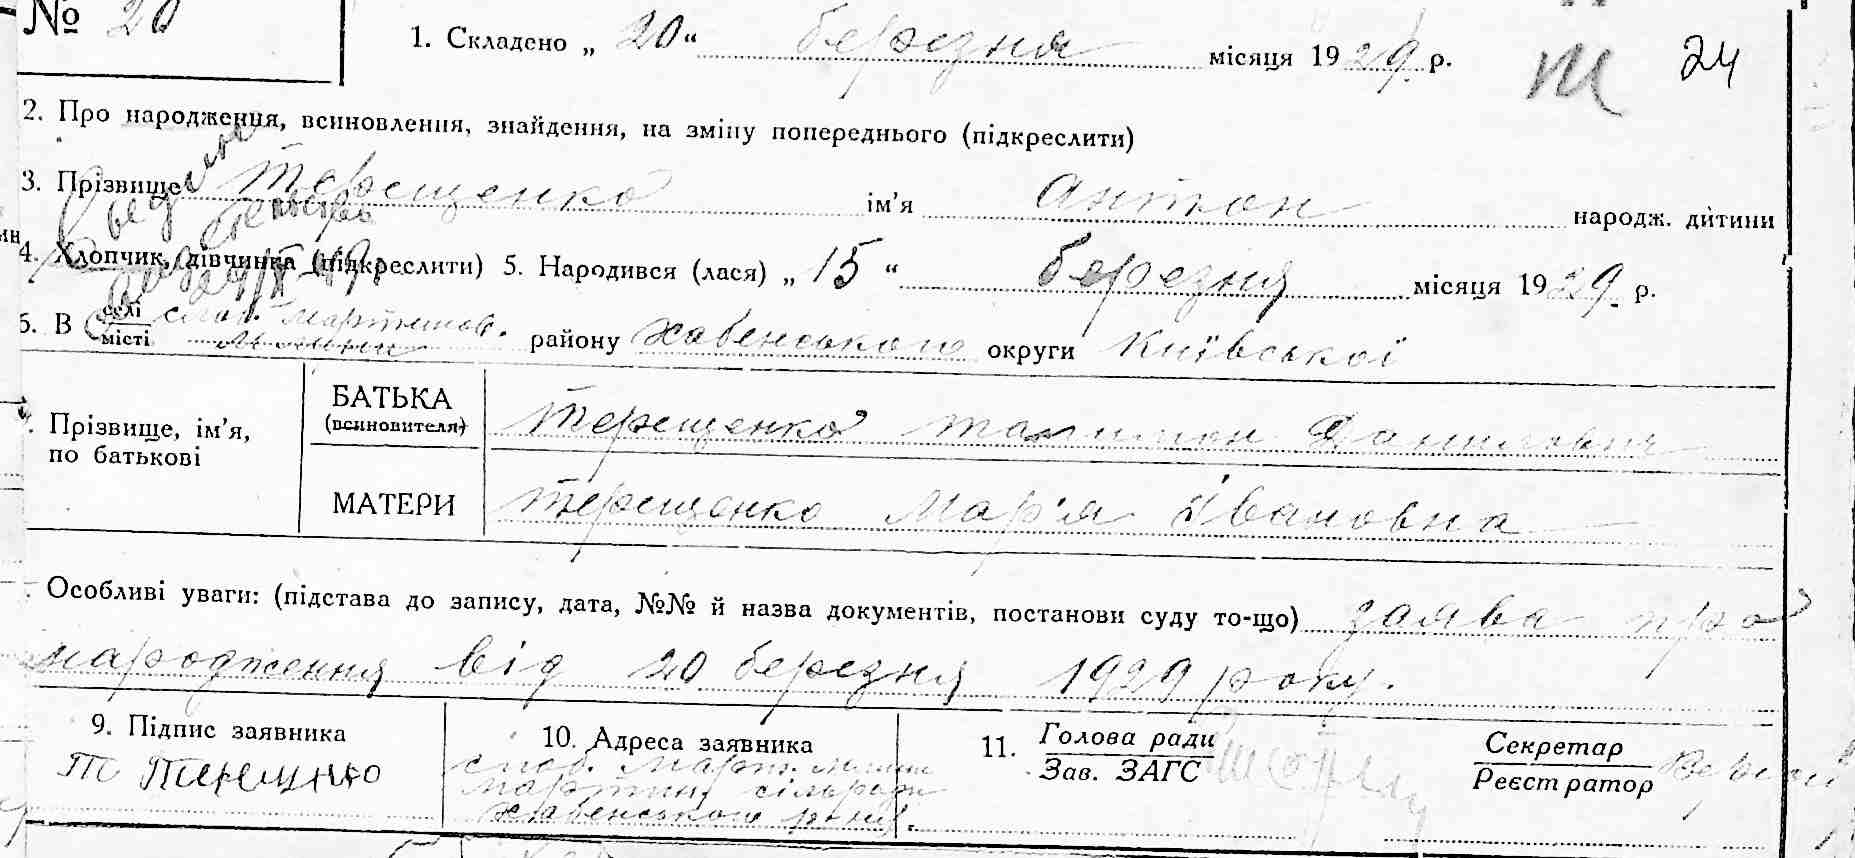 № 20
1. Складено „ 20 “ березня місяця 1929 р.
Т 24
2. Про народження, всиновлення, знайдення, на зміну попереднього (підкреслити)
3. Прізвище Терещенко ім’я Антон народж. дитини
4. Хлопчик, дівчинка (підкреслити) 5. Народився (лася) „ 15 “ березня місяця 1929 р.
6. В селі місті району Хабенського округи Київської
Прізвище, ім’я, по батькові
БАТЬКА (всиновителя) Терещенко Данилович
МАТЕРИ Терещенко Мар'я Івановна
Особливі уваги: (підстава до запису, дата, №№ й назва документів, постанови суду то-що) заява про
народження від 20 березня 1929 року.
9. Підпис заявника
Т Терещенко
10. Адреса заявника
сільради
Хабенського
11. Голова ради
Зав. ЗАГС
Секретар
Реєстратор